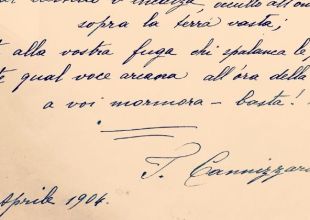 occulto all'om
sopra la terra vasta;
alla vostra fuga chi spalanca le
qual voce arcana all'ora della
a voi mormora – basta!
T. Cannizzar
Aprile 1904.